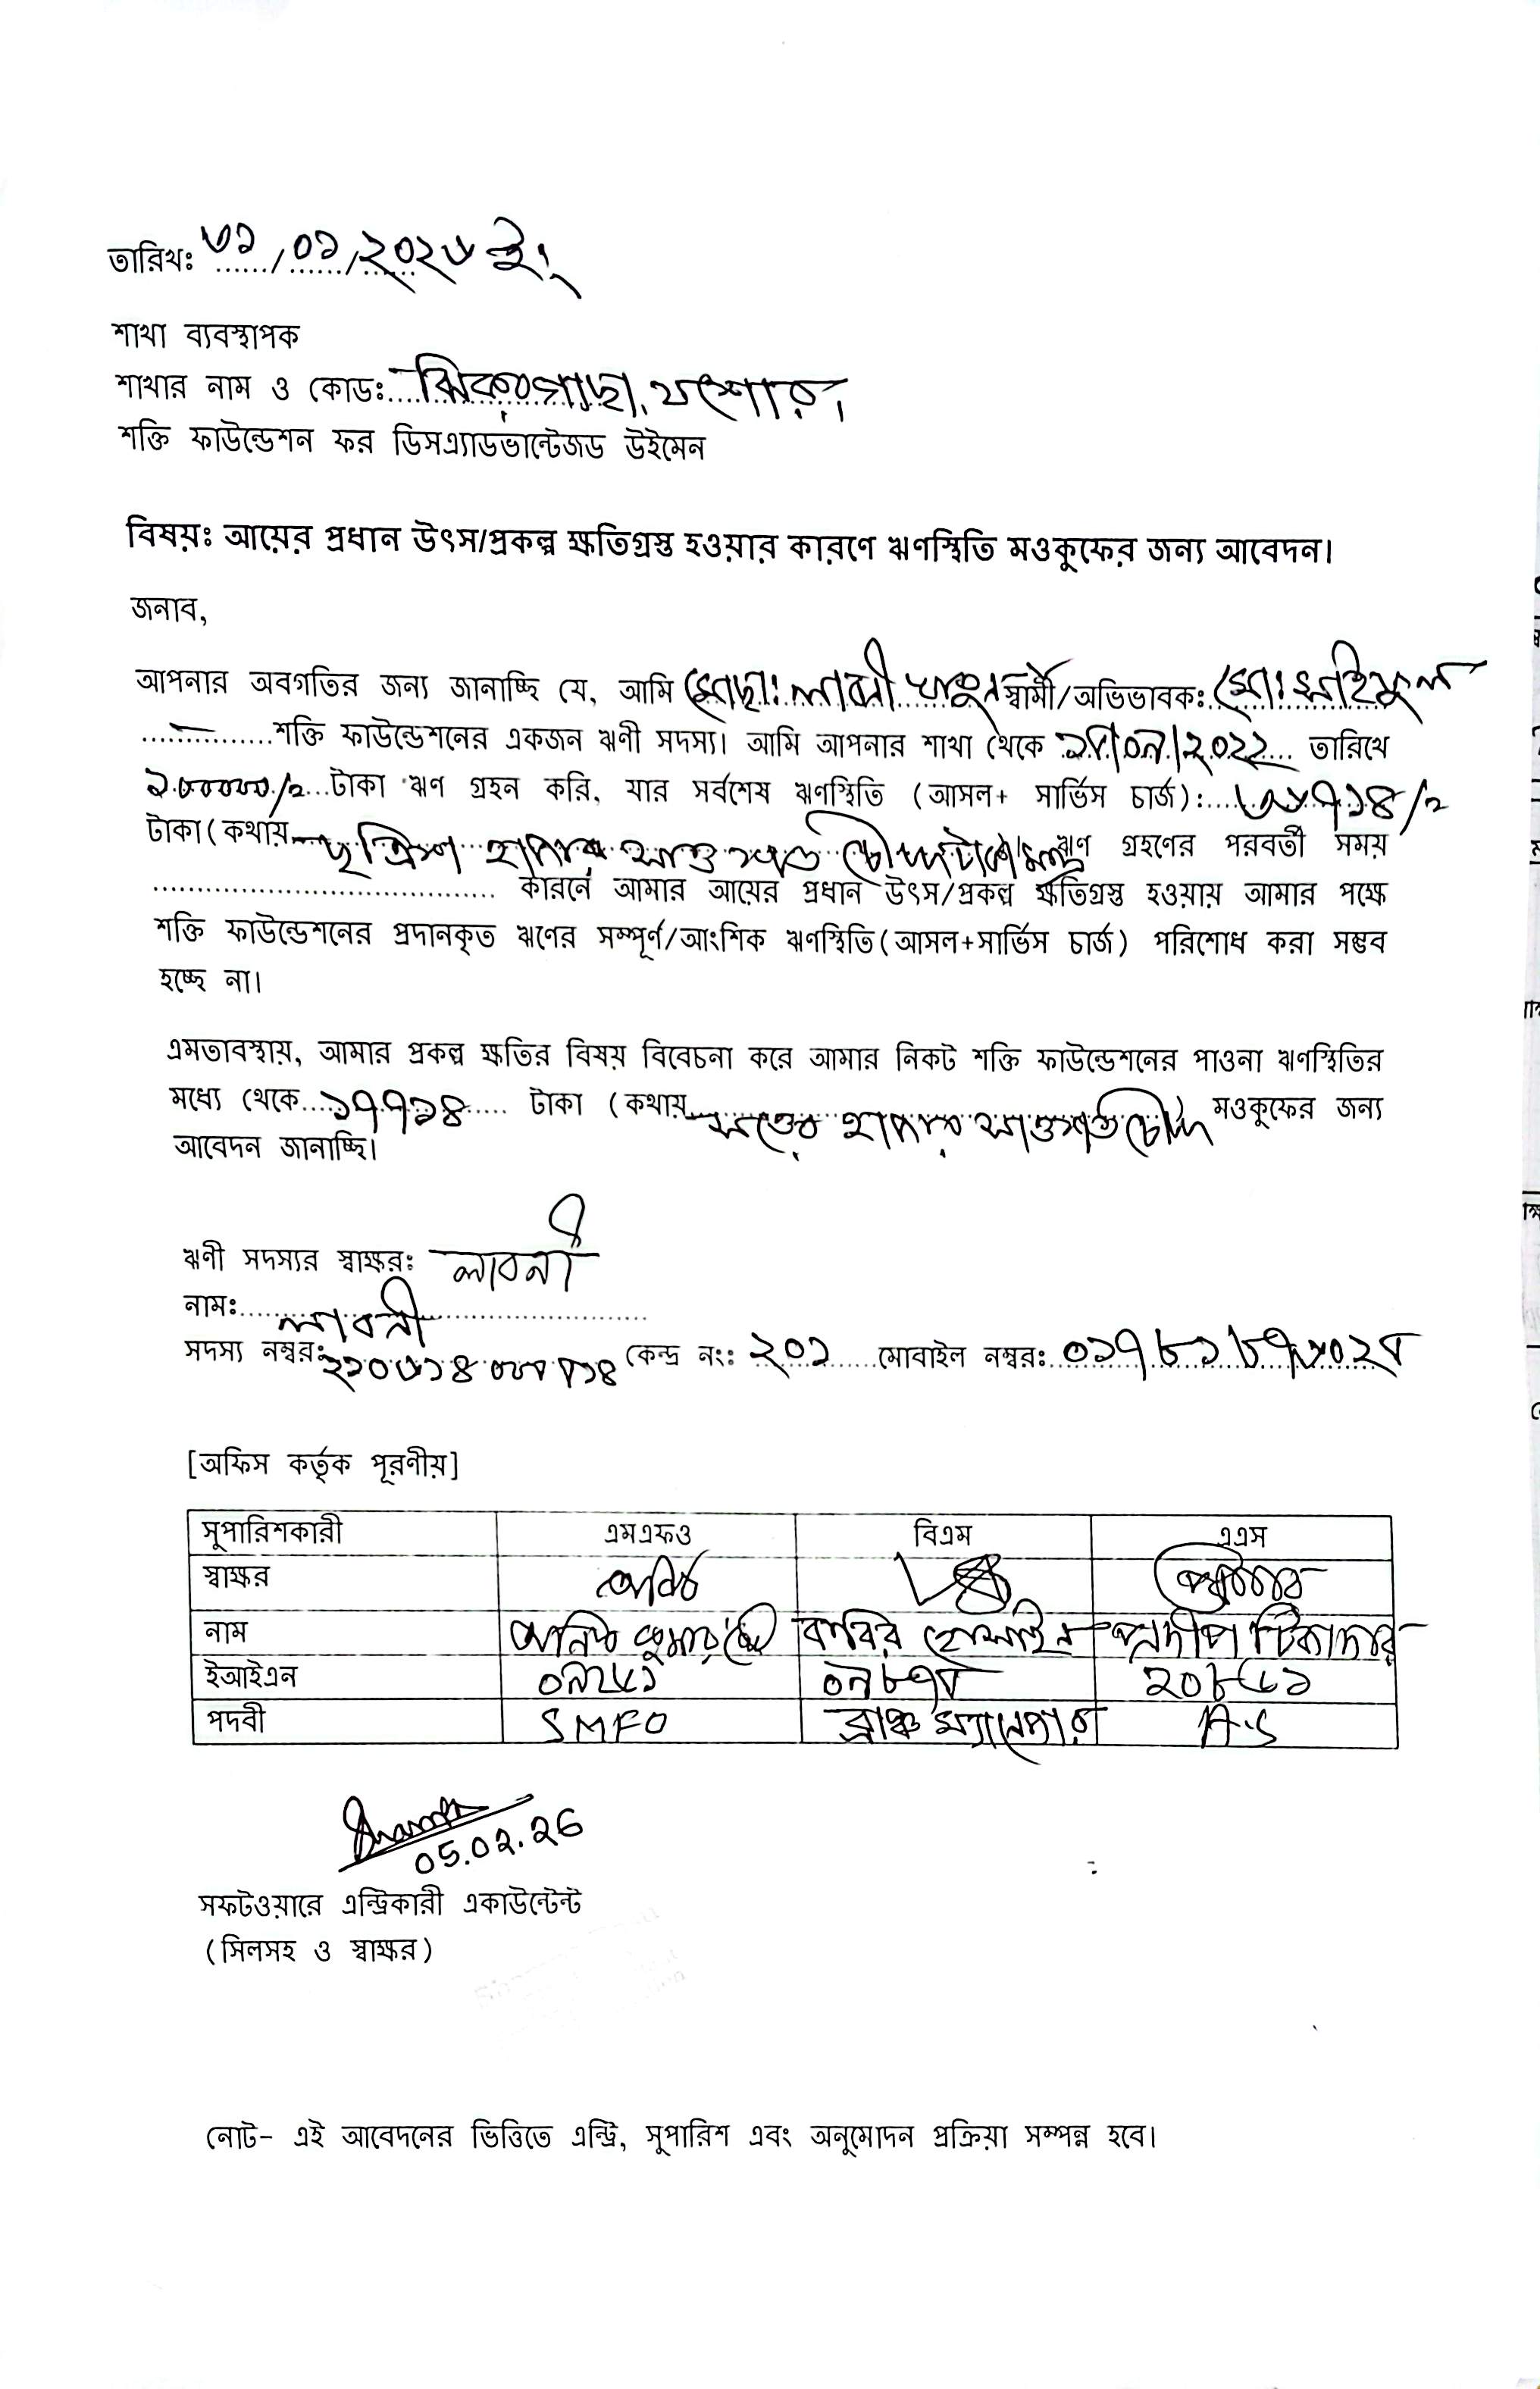 তারিখঃ ৩১/০১/২০২৬ ইং
শাখা ব্যবস্থাপক
শাখার নাম ও কোডঃ ঝিকরগাছা, যশোর,
শক্তি ফাউন্ডেশন ফর ডিসএ্যাডভান্টেজড উইমেন
বিষয়ঃ আয়ের প্রধান উৎস/প্রকল্প ক্ষতিগ্রস্ত হওয়ার কারণে ঋণস্থিতি মওকুফের জন্য আবেদন।
জনাব,
আপনার অবগতির জন্য জানাচ্ছি যে, আমি মোছাঃ লাবনী খাতুন স্বামী/অভিভাবকঃ মোঃ সাইফুল
শক্তি ফাউন্ডেশনের একজন ঋণী সদস্য। আমি আপনার শাখা থেকে ১৮/০৯/২০২২ তারিখে
টাকা ঋণ গ্রহন করি, যার সর্বশেষ ঋণস্থিতি (আসল+ সার্ভিস চার্জ): ৩৬৭১৪/=
টাকা (কথায় ছত্রিশ হাজার সাত শত চৌদ্দ টাকা মাত্র ঋণ গ্রহণের পরবর্তী সময়
কারনে আমার আয়ের প্রধান উৎস/প্রকল্প ক্ষতিগ্রস্ত হওয়ায় আমার পক্ষে
শক্তি ফাউন্ডেশনের প্রদানকৃত ঋণের সম্পূর্ণ/আংশিক ঋণস্থিতি(আসল+সার্ভিস চার্জ) পরিশোধ করা সম্ভব
হচ্ছে না।
এমতাবস্থায়, আমার প্রকল্প ক্ষতির বিষয় বিবেচনা করে আমার নিকট শক্তি ফাউন্ডেশনের পাওনা ঋণস্থিতির
মধ্যে থেকে ১৭৭১৪ টাকা (কথায় সতের হাজার সাতশত চৌদ্দ মওকুফের জন্য
আবেদন জানাচ্ছি।
ঋণী সদস্যর স্বাক্ষরঃ লাবনী
নামঃ লাবনী
সদস্য নম্বরঃ কেন্দ্র নংঃ ২০১ মোবাইল নম্বরঃ
[অফিস কর্তৃক পূরণীয়]
সুপারিশকারী এমএফও বিএম এএস
স্বাক্ষর
নাম অনিত কুমার দে কাবির হোসাইন প্রদীপ টিকাদার
ইআইএন
পদবী SMFO ব্রাঞ্চ ম্যানেজার A.S
05.02.26
সফটওয়ারে এন্ট্রিকারী একাউন্টেন্ট
(সিলসহ ও স্বাক্ষর)
নোট- এই আবেদনের ভিত্তিতে এন্ট্রি, সুপারিশ এবং অনুমোদন প্রক্রিয়া সম্পন্ন হবে।